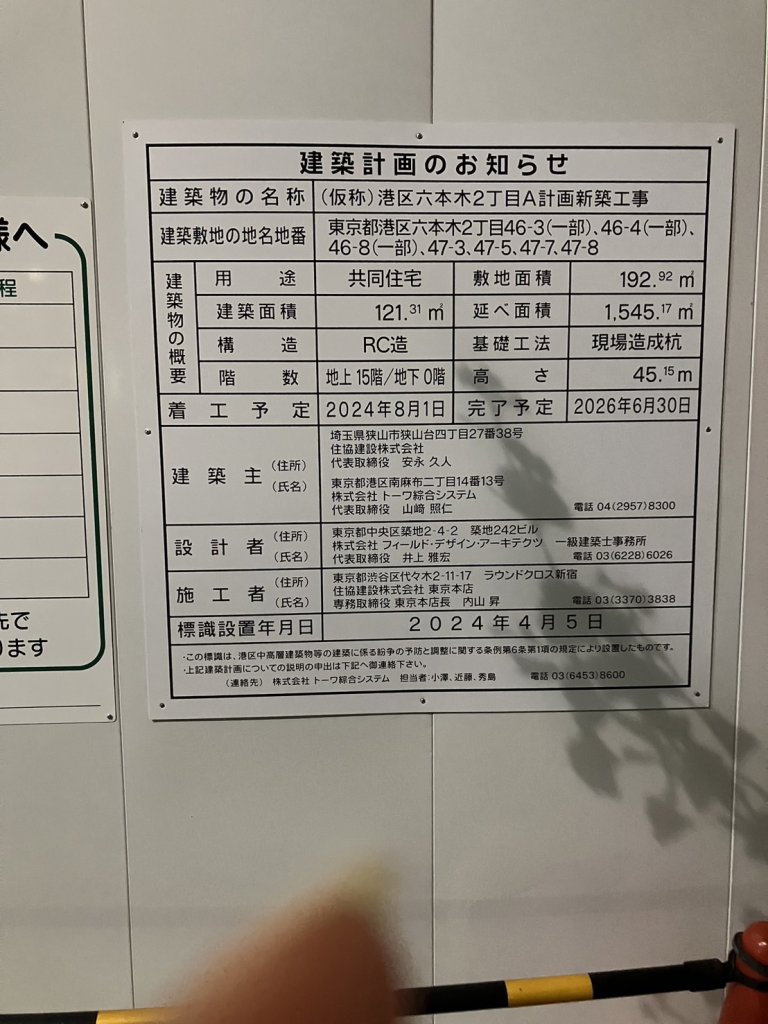 様へ
程
先で
ります
建築計画のお知らせ
建築物の名称 (仮称)港区六本木2丁目A計画新築工事
建築敷地の地名地番 東京都港区六本木2丁目46-3(一部)、46-4(一部)、
46-8(一部)、47-3、47-5、47-7、47-8
建築物の概要
用途 共同住宅 敷地面積 192.92㎡
建築面積 121.31㎡ 延べ面積 1,545.17㎡
構造 RC造 基礎工法 現場造成杭
階数 地上15階/地下0階 高さ 45.15m
着工予定 2024年8月1日 完了予定 2026年6月30日
建築主 (住所) (氏名)
埼玉県狭山市狭山台四丁目27番38号
住協建設株式会社
代表取締役 安永 久人
東京都港区南麻布二丁目14番13号
株式会社 トーワ綜合システム
代表取締役 山﨑 照仁 電話 04(2957)8300
設計者 (住所) (氏名)
東京都中央区築地2-4-2 築地242ビル
株式会社 フィールド・デザイン・アーキテクツ 一級建築士事務所
代表取締役 井上 雅宏 電話 03(6228)6026
施工者 (住所) (氏名)
東京都渋谷区代々木2-11-17 ラウンドクロス新宿
住協建設株式会社 東京本店
専務取締役 東京本店長 内山 昇 電話 03(3370)3838
標識設置年月日 2024年4月5日
・この標識は、港区中高層建築物等の建築に係る紛争の予防と調整に関する条例第6条第1項の規定により設置したものです。
・上記建築計画についての説明の申出は下記へ御連絡下さい。
(連絡先) 株式会社 トーワ綜合システム 担当者:小澤、近藤、秀島 電話 03(6453)8600